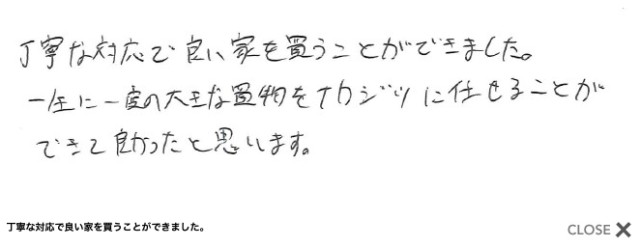 丁寧な対応で良い家を買うことができました。
一生に一度の大きな買物をナカジツに任せることが
できて良かったと思います。
丁寧な対応で良い家を買うことができました。
CLOSE ✕